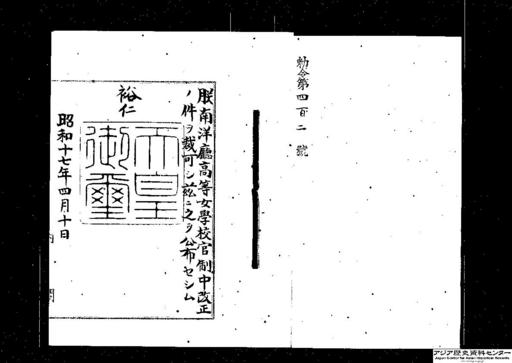 勅令第四百二號
朕南洋廳高等女學校官制中改正
ノ件ヲ裁可シ茲ニ之ヲ公布セシム
裕仁
天皇御璽
昭和十七年四月十日
内閣
アジア歴史資料センター
Japan Center for Asian Historical Records